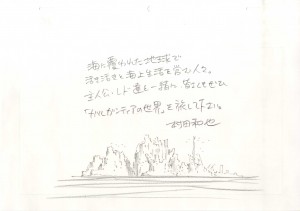 海に覆われた地球で
活き活きと海上生活を営む人々。
主人公レド達と一緒に、皆さんもぜひ
「ガルガンティアの世界」を旅して下さい。
村田和也